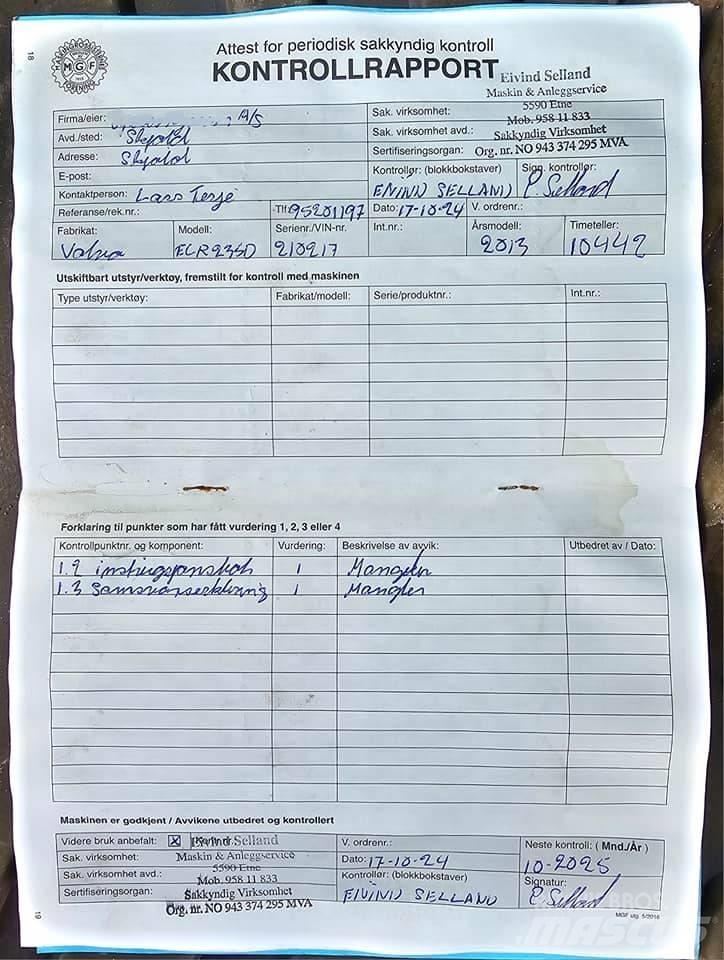 18
MASKINGROSSISTENES FORENING
MGF
Attest for periodisk sakkyndig kontroll
KONTROLLRAPPORT
Eivind Selland
Maskin & Anleggservice
5590 Etne
Mob. 958 11 833
Sakkyndig Virksomhet
Org. nr. NO 943 374 295 MVA
Firma/eier: A/S
Avd./sted: Skjold
Adresse: Skjold
E-post:
Kontaktperson: Lars Terje
Referanse/rek.nr.: Tlf: 95201197
Sak. virksomhet:
Sak. virksomhet avd.:
Sertifiseringsorgan:
Kontrollør: (blokkbokstaver) EIVIND SELLAND
Sign. kontrollør: E. Selland
Dato: 17-10-24 V. ordrenr.:
Fabrikat: Volvo Modell: ECR235D Serienr./VIN-nr. 210217 Int.nr.: Årsmodell: 2013 Timeteller: 10442
Utskiftbart utstyr/verktøy, fremstilt for kontroll med maskinen
Type utstyr/verktøy: Fabrikat/modell: Serie/produktnr.: Int.nr.:
Forklaring til punkter som har fått vurdering 1, 2, 3 eller 4
Kontrollpunktnr. og komponent: Vurdering: Beskrivelse av avvik: Utbedret av / Dato:
1.2 1 Mangler
1.3 Samsvarserklæring 1 Mangler
Maskinen er godkjent / Avvikene utbedret og kontrollert
Videre bruk anbefalt: X
Eivind Selland
Maskin & Anleggservice
5590 Etne
Mob. 958 11 833
Sakkyndig Virksomhet
Org. nr. NO 943 374 295 MVA
Sak. virksomhet:
Sak. virksomhet avd.:
Sertifiseringsorgan:
V. ordrenr.:
Dato: 17-10-24
Kontrollør: (blokkbokstaver)
EIVIND SELLAND
Neste kontroll: ( Mnd./År )
10-2025
Signatur:
E. Selland
MGF utg. 5/2016
19
MASCUS